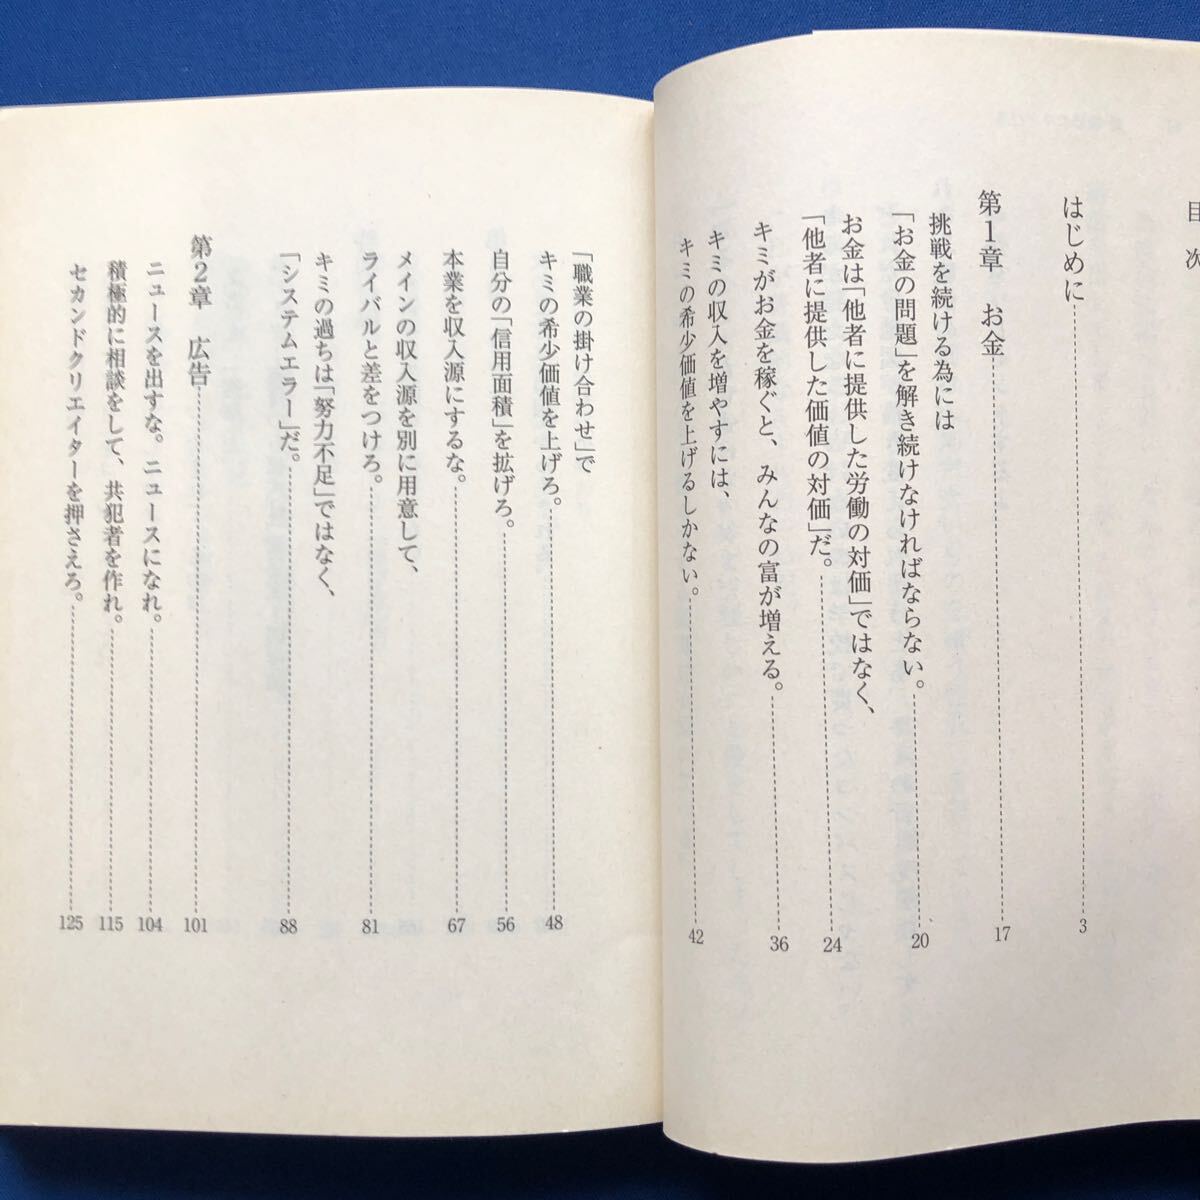 目次
はじめに 3
第1章 お金 17
挑戦を続ける為には
「お金の問題」を解き続けなければならない。 20
お金は「他者に提供した労働の対価」ではなく、
「他者に提供した価値の対価」だ。 24
キミがお金を稼ぐと、みんなの富が増える。 36
キミの収入を増やすには、
キミの希少価値を上げるしかない。 42
「職業の掛け合わせ」で
キミの希少価値を上げろ。 48
自分の「信用面積」を拡げろ。 56
本業を収入源にするな。 67
メインの収入源を別に用意して、
ライバルと差をつけろ。 81
キミの過ちは「努力不足」ではなく、
「システムエラー」だ。 88
第2章 広告 101
ニュースを出すな。ニュースになれ。 104
積極的に相談をして、共犯者を作れ。 115
セカンドクリエイターを押さえろ。 125